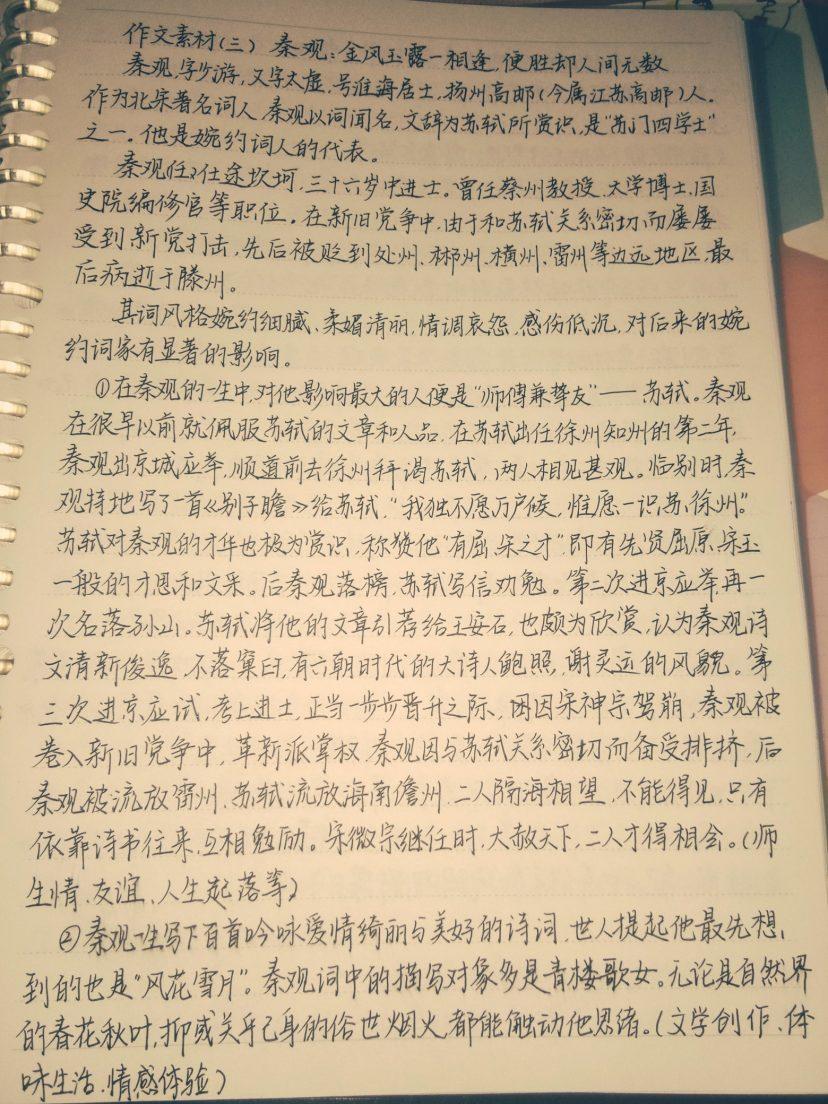 作文素材(三) 秦观：金风玉露一相逢，便胜却人间无数
秦观，字少游，又字太虚，号淮海居士，扬州高邮(今属江苏高邮)人。
作为北宋著名词人，秦观以词闻名，文辞为苏轼所赏识，是“苏门四学士”
之一。他是婉约词人的代表。
秦观仕途坎坷，三十六岁中进士。曾任蔡州教授、太学博士、国
史院编修官等职位。在新旧党争中，由于和苏轼关系密切，而屡屡
受到新党打击，先后被贬到处州、郴州、横州、雷州等边远地区，最
后病逝于滕州。
其词风格婉约细腻、柔媚清丽，情调哀怨，感伤低沉，对后来的婉
约词家有显著的影响。
①在秦观的一生中，对他影响最大的人便是“师傅兼挚友”——苏轼。秦观
在很早以前就佩服苏轼的文章和人品，在苏轼出任徐州知州的第二年，
秦观出京城应举，顺道前去徐州拜谒苏轼，两人相见甚观。临别时，秦
观特地写了一首《别子瞻》给苏轼，“我独不愿万户候，惟愿一识苏徐州”。
苏轼对秦观的才华也极为赏识，称赞他“有屈、宋之才”，即有先贤屈原、宋玉
一般的才思和文采。后秦观落榜，苏轼写信劝勉。第二次进京应举，再一
次名落孙山。苏轼将他的文章引荐给王安石，也颇为欣赏，认为秦观诗
文清新俊逸，不落窠臼，有六朝时代的大诗人鲍照，谢灵运的风貌。第
三次进京应试，考上进士，正当一步步晋升之际，因宋神宗驾崩，秦观被
卷入新旧党争中，革新派掌权，秦观因与苏轼关系密切而备受排挤，后
秦观被流放雷州，苏轼流放海南儋州，二人隔海相望，不能得见，只有
依靠诗书往来，互相勉励。宋微宗继任时，大赦天下，二人才得相会。(师
生情、友谊、人生起落等)
②秦观一生写下百首吟咏爱情绮丽与美好的诗词，世人提起他最先想
到的也是“风花雪月”。秦观词中的描写对象多是青楼歌女。无论是自然界
的春花秋叶，抑或关乎己身的俗世烟火，都能触动他思绪。(文学创作、体
味生活、情感体验)